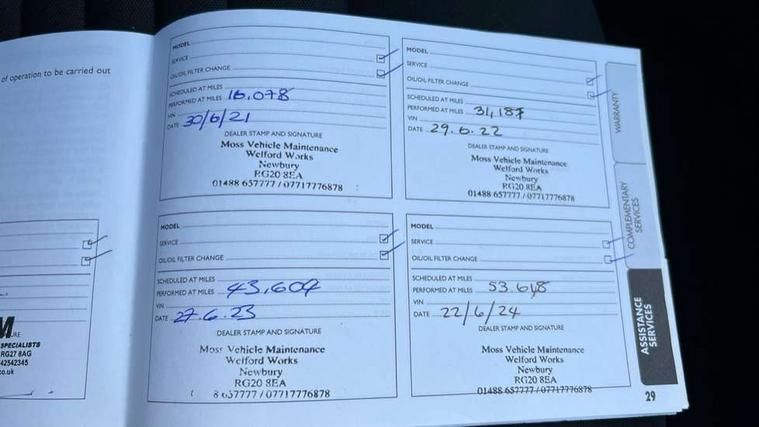 of operation to be carried out
SPECIALISTS
RG27 8AG
42542345
co.uk
MODEL
SERVICE
OIL/OIL FILTER CHANGE
SCHEDULED AT MILES
PERFORMED AT MILES 16,078
VIN
DATE 30/6/21
DEALER STAMP AND SIGNATURE
Moss Vehicle Maintenance
Welford Works
Newbury
RG20 8EA
01488 657777 / 07717776878
MODEL
SERVICE
OIL/OIL FILTER CHANGE
SCHEDULED AT MILES
PERFORMED AT MILES 31,187
VIN
DATE 29.6.22
DEALER STAMP AND SIGNATURE
Moss Vehicle Maintenance
Welford Works
Newbury
RG20 8EA
01488 657777 / 07717776878
MODEL
SERVICE
OIL/OIL FILTER CHANGE
SCHEDULED AT MILES
PERFORMED AT MILES 43,604
VIN
DATE 27.6.23
DEALER STAMP AND SIGNATURE
Moss Vehicle Maintenance
Welford Works
Newbury
RG20 8EA
8 657777 / 07717776878
MODEL
SERVICE
OIL/OIL FILTER CHANGE
SCHEDULED AT MILES
PERFORMED AT MILES 53.648
VIN
DATE 22/6/24
DEALER STAMP AND SIGNATURE
Moss Vehicle Maintenance
Welford Works
Newbury
RG20 8EA
01488 657777 / 07717776878
WARRANTY
COMPLEMENTARY
SERVICES
ASSISTANCE
SERVICES
29